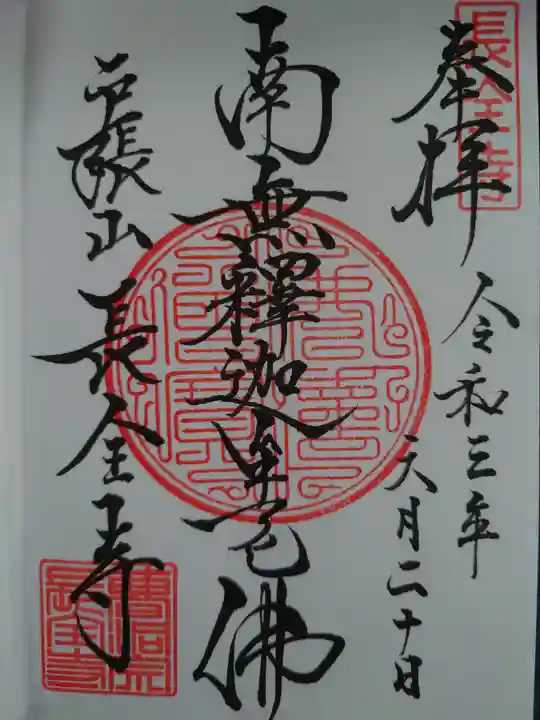 長全寺
奉拝
令和三年
六月二十日
南無釋迦牟尼佛
戸張山
長全寺